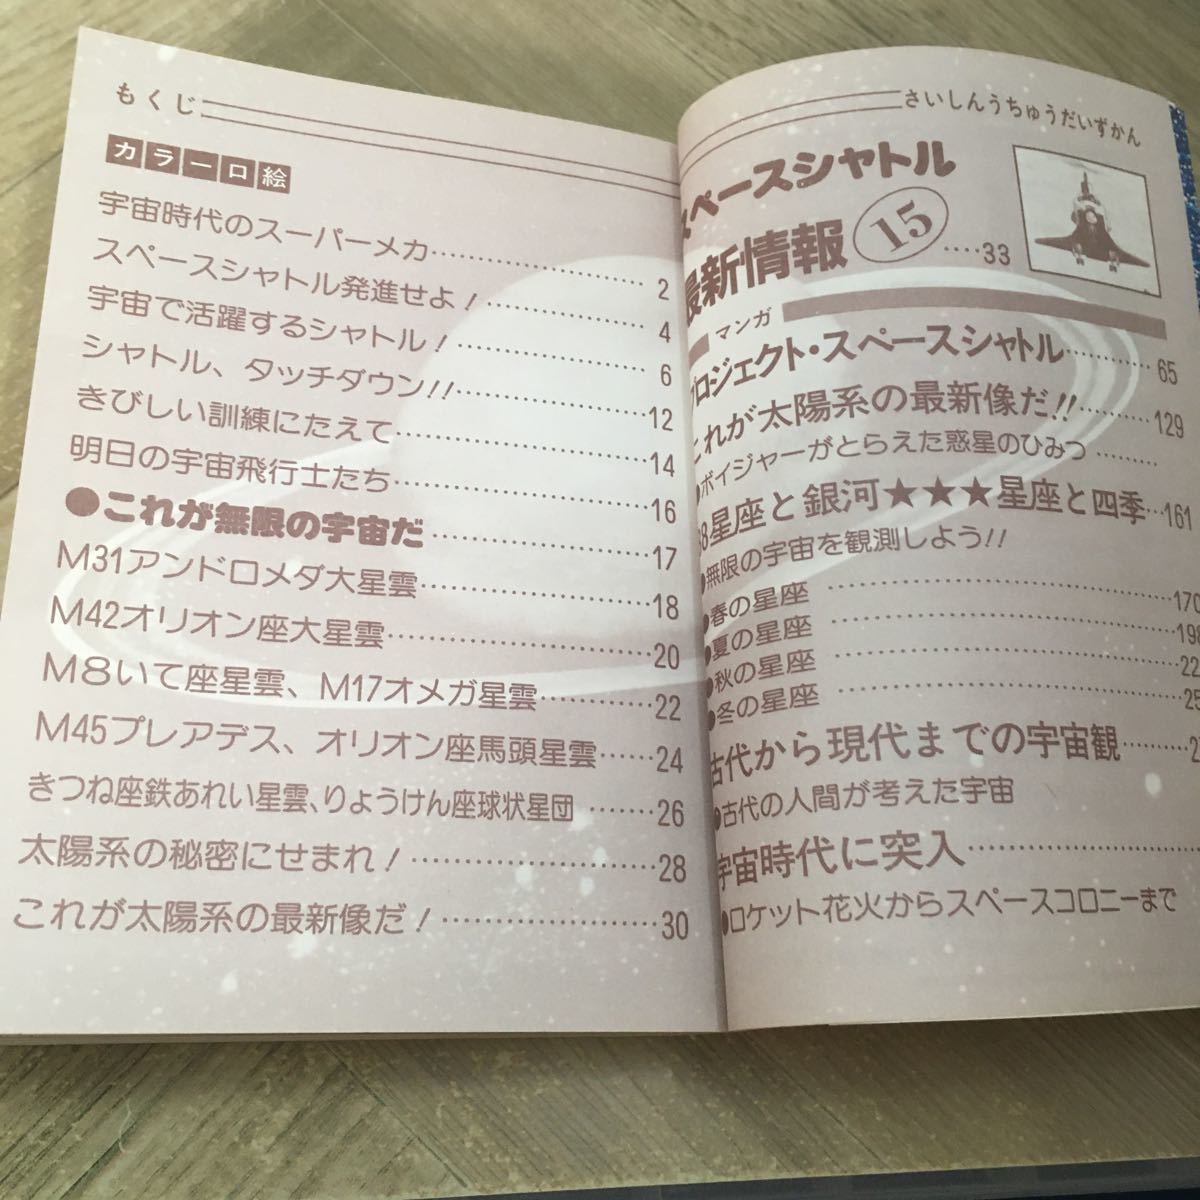 もくじ
カラー口絵
宇宙時代のスーパーメカ……………… 2
スペースシャトル発進せよ！……………… 4
宇宙で活躍するシャトル！……………… 6
シャトル、タッチダウン!!……………… 12
きびしい訓練にたえて……………… 14
明日の宇宙飛行士たち……………… 16
●これが無限の宇宙だ……………… 17
M31アンドロメダ大星雲……………… 18
M42オリオン座大星雲……………… 20
M8いて座星雲、M17オメガ星雲……… 22
M45プレアデス、オリオン座馬頭星雲…… 24
きつね座鉄あれい星雲、りょうけん座球状星団 …… 26
太陽系の秘密にせまれ！……………… 28
これが太陽系の最新像だ！……………… 30
さいしんうちゅうだいずかん
スペースシャトル
最新情報 15 ……33
マンガ
プロジェクト・スペースシャトル……… 65
これが太陽系の最新像だ!!……… 129
●ボイジャーがとらえた惑星のひみつ………
8星座と銀河★★★星座と四季…161
●無限の宇宙を観測しよう!!
●春の星座 ……………… 170
●夏の星座 ……………… 198
●秋の星座 ……………… 22
●冬の星座 ……………… 25
古代から現代までの宇宙観………2
●古代の人間が考えた宇宙
宇宙時代に突入………………
●ロケット花火からスペースコロニーまで